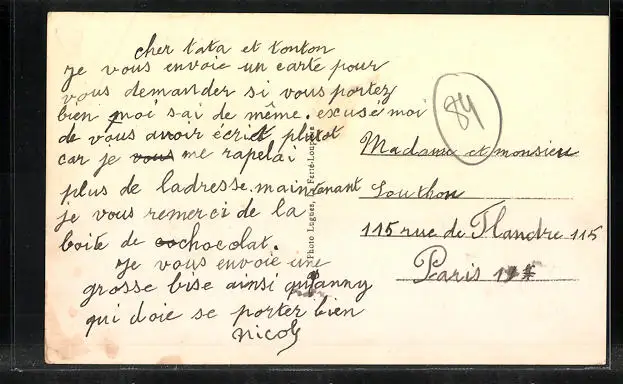 cher tata et tonton
je vous envoie un carte pour
vous demander si vous portez
bien moi s-ai de même. excusé moi
de vous avoir écriet plutot
car je vous me rapelai
plus de ladresse. maintenant
je vous remerci de la
boite de cochocolat.
Je vous envoie une
grosse bise ainsi qu'anny
qui doie se porter bien
nicole
Photo Lugues, La Ferté-Loupière
84
Madame et monsieur
Louthon
115 rue de Flandre 115
Paris